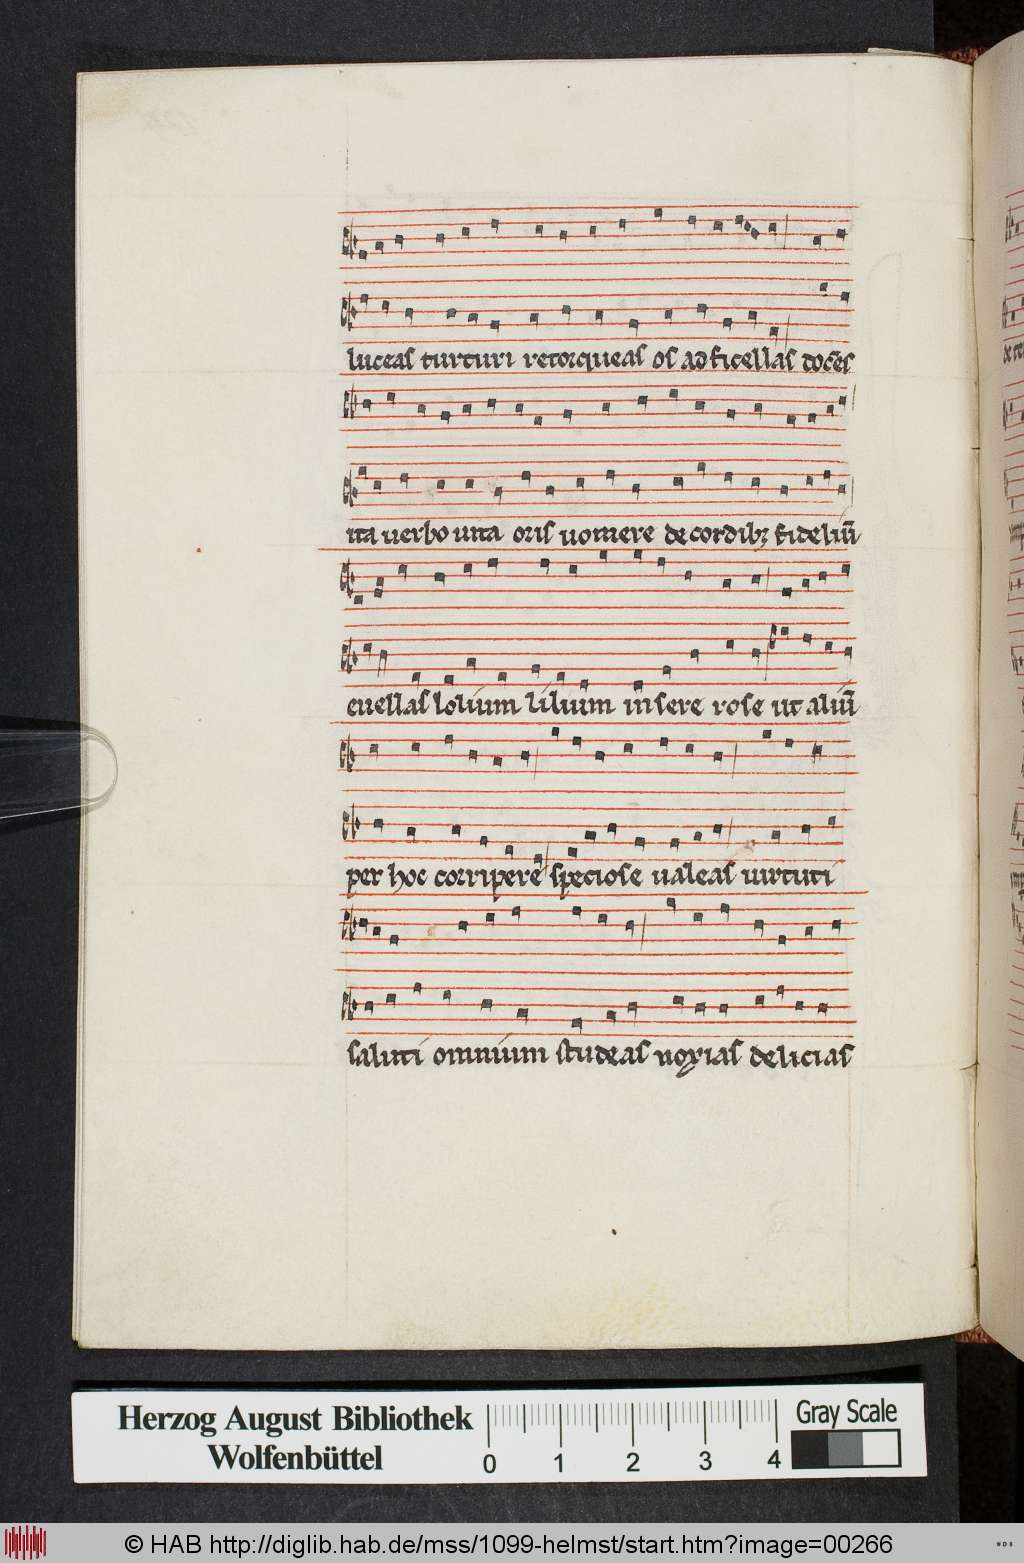 luceas turturi retorqueas os ad ficellas doces
ita verbo vita oris vomere de cordibꝫ fideliū
evellas lolium lilium insere rose ut aliū
per hoc corripere speciose valeas virtuti
saluti omnium studeas noxias delicias
Herzog August Bibliothek
Wolfenbüttel
0 1 2 3 4
Gray Scale
© HAB http://diglib.hab.de/mss/1099-helmst/start.htm?image=00266